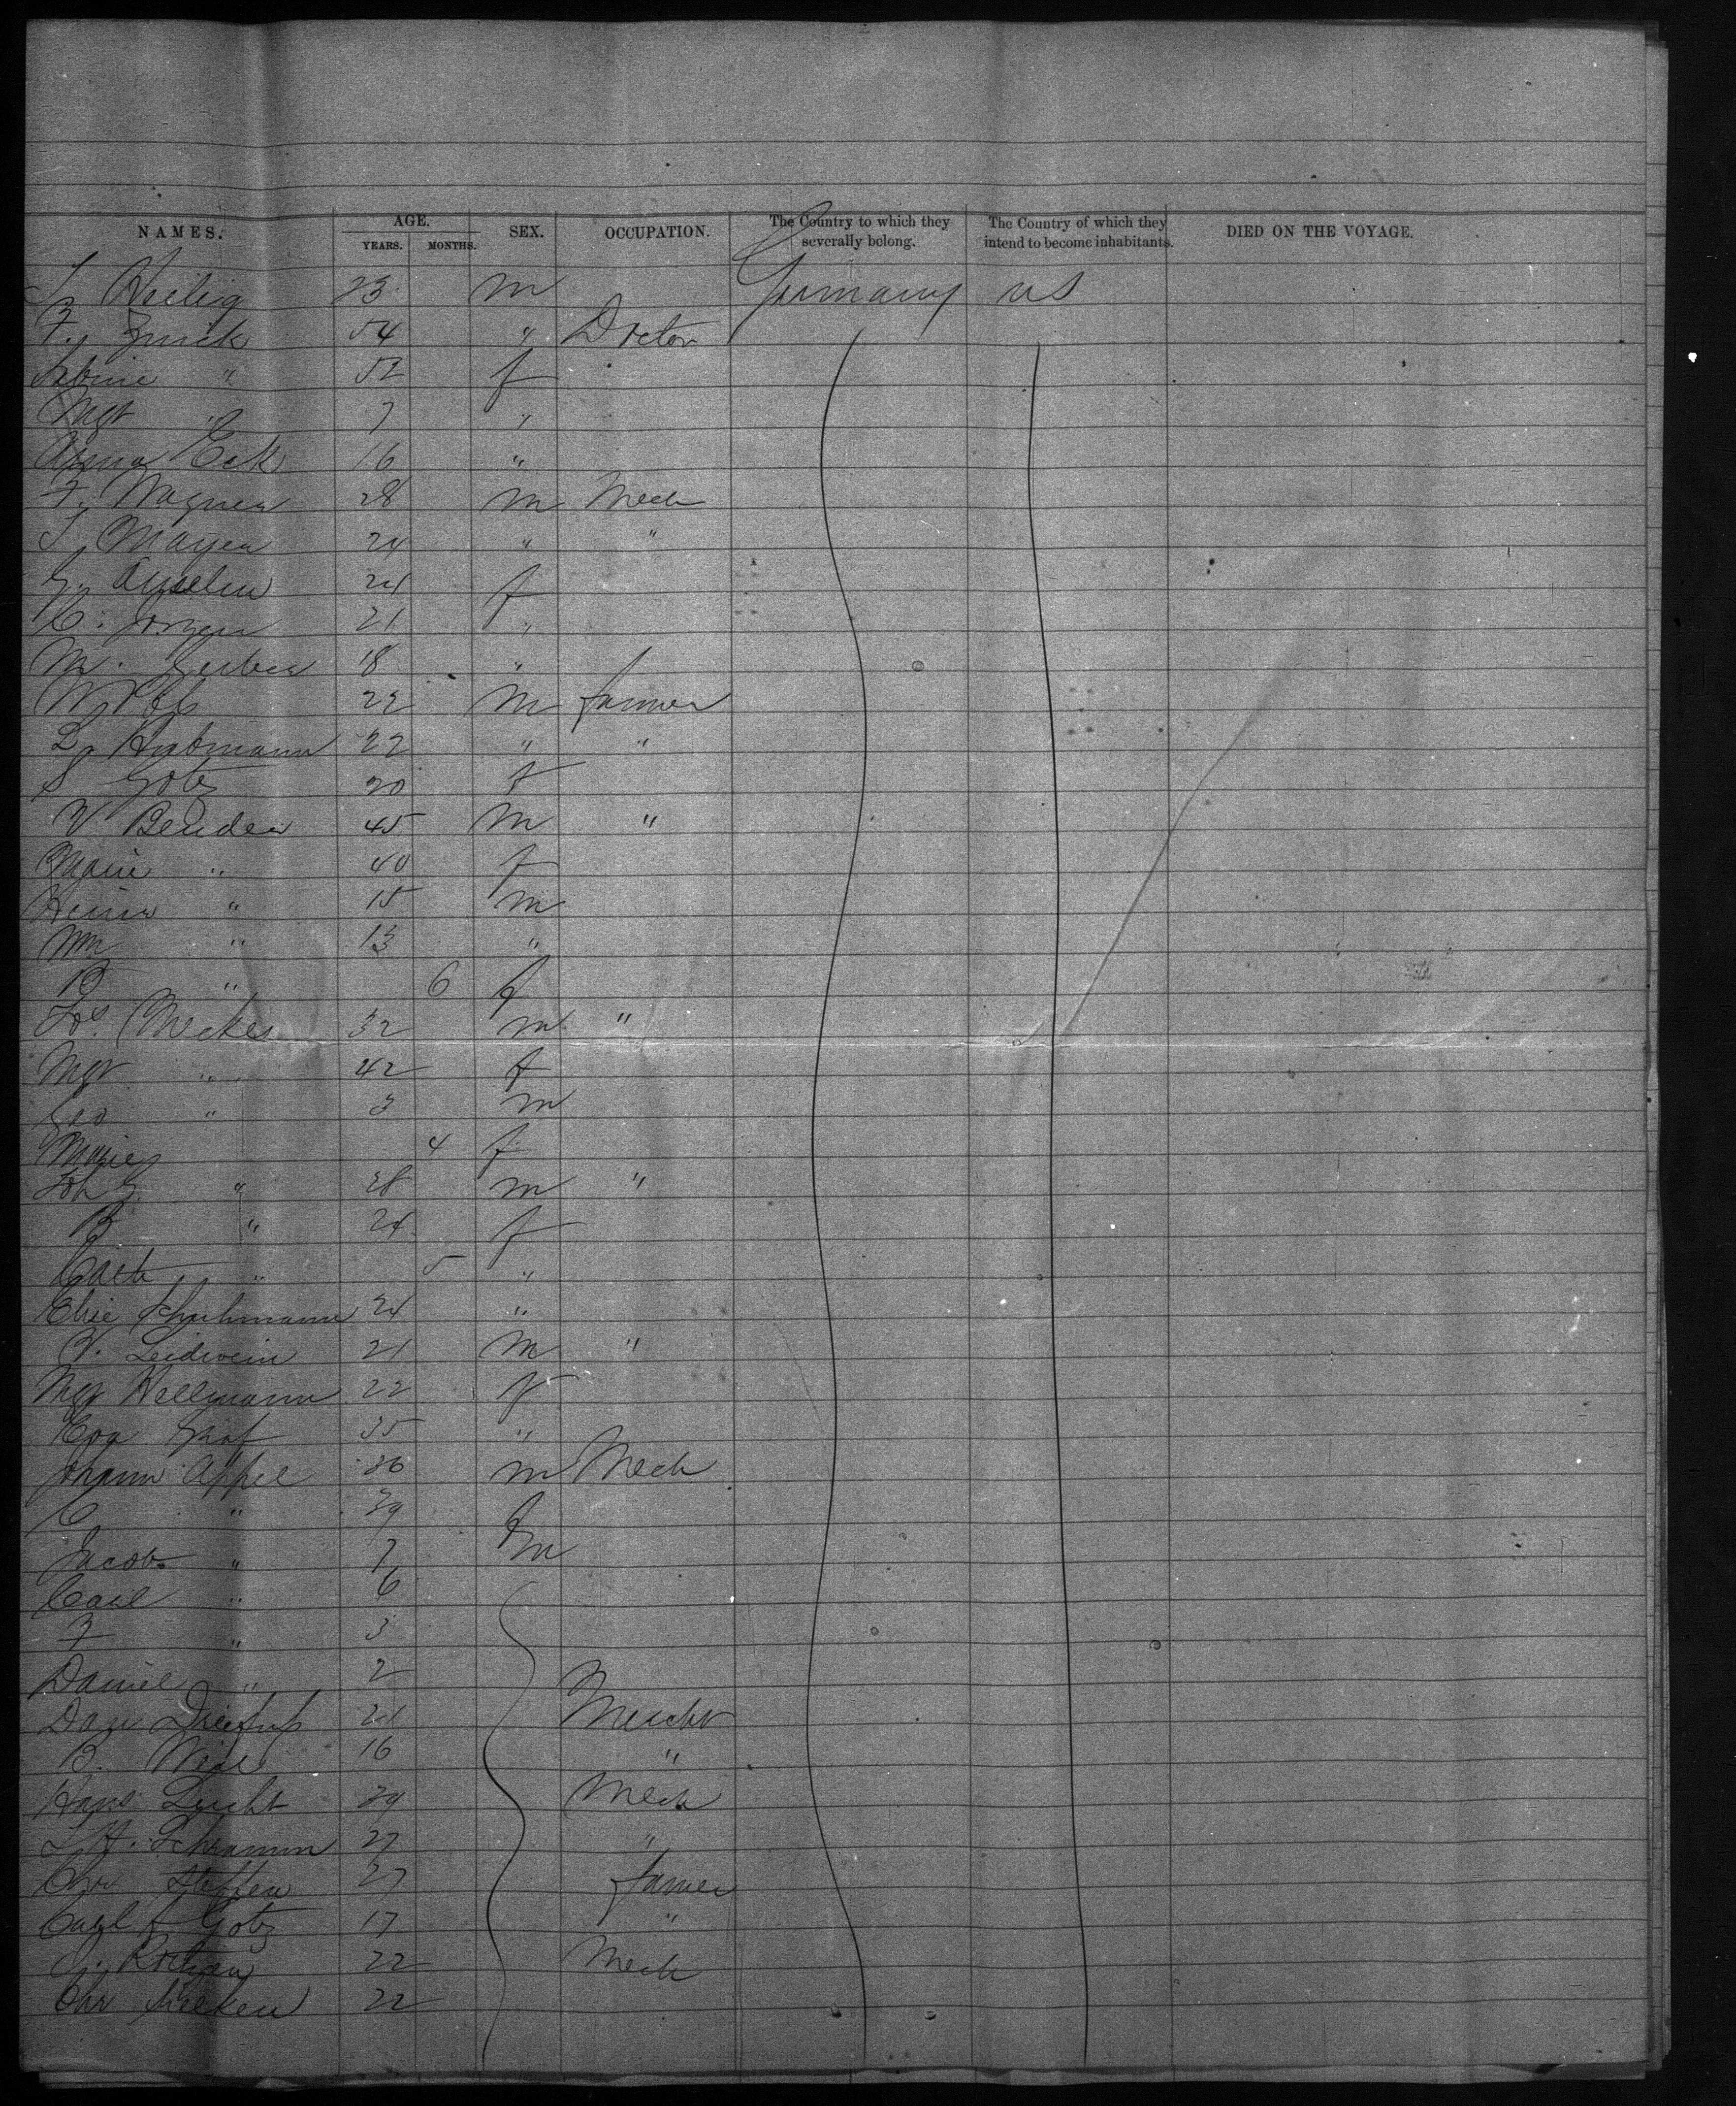 NAMES. AGE. SEX. OCCUPATION. The Country to which they severally belong. The Country of which they intend to become inhabitants. DIED ON THE VOYAGE.
YEARS. MONTHS.
Heilig 23 m Germany US
F. Zurick 54 " Doctor
Sabine " 52 f
Mgt " 7 "
Anna Eck 16 "
F. Wagner 28 m Mech
J Mayer 24 " "
24 f
C. 21 "
M. Gerber 18 "
W 22 m farmer
L. Hubmann 22 " "
S Gotz 20 f
V Bender 45 m "
Marie " 40 f
" 15 m
Wm " 13 "
B " 6 f
Jos. Meckes 32 m "
Mgt " 42 f
Geo " 3 m
Marie 4 f
Joh G. " 28 m "
B " 24 f
Cath " 5 "
Elise Schuhmann 24 "
V. Leidwein 21 m "
Mgt Hellmann 22 f
Eva Graf 35 "
Johann Appel 36 m Mech
C " 39 f
Jacob " 7 m
Carl " 6
F " 3
Daniel " 2
24 Mercht
B. 16 "
Hans Leicht 39 Mech
Schramm 27 "
Chr Steffen 27 farmer
Carl f Gotz 17 "
22 Mech
Chr 22